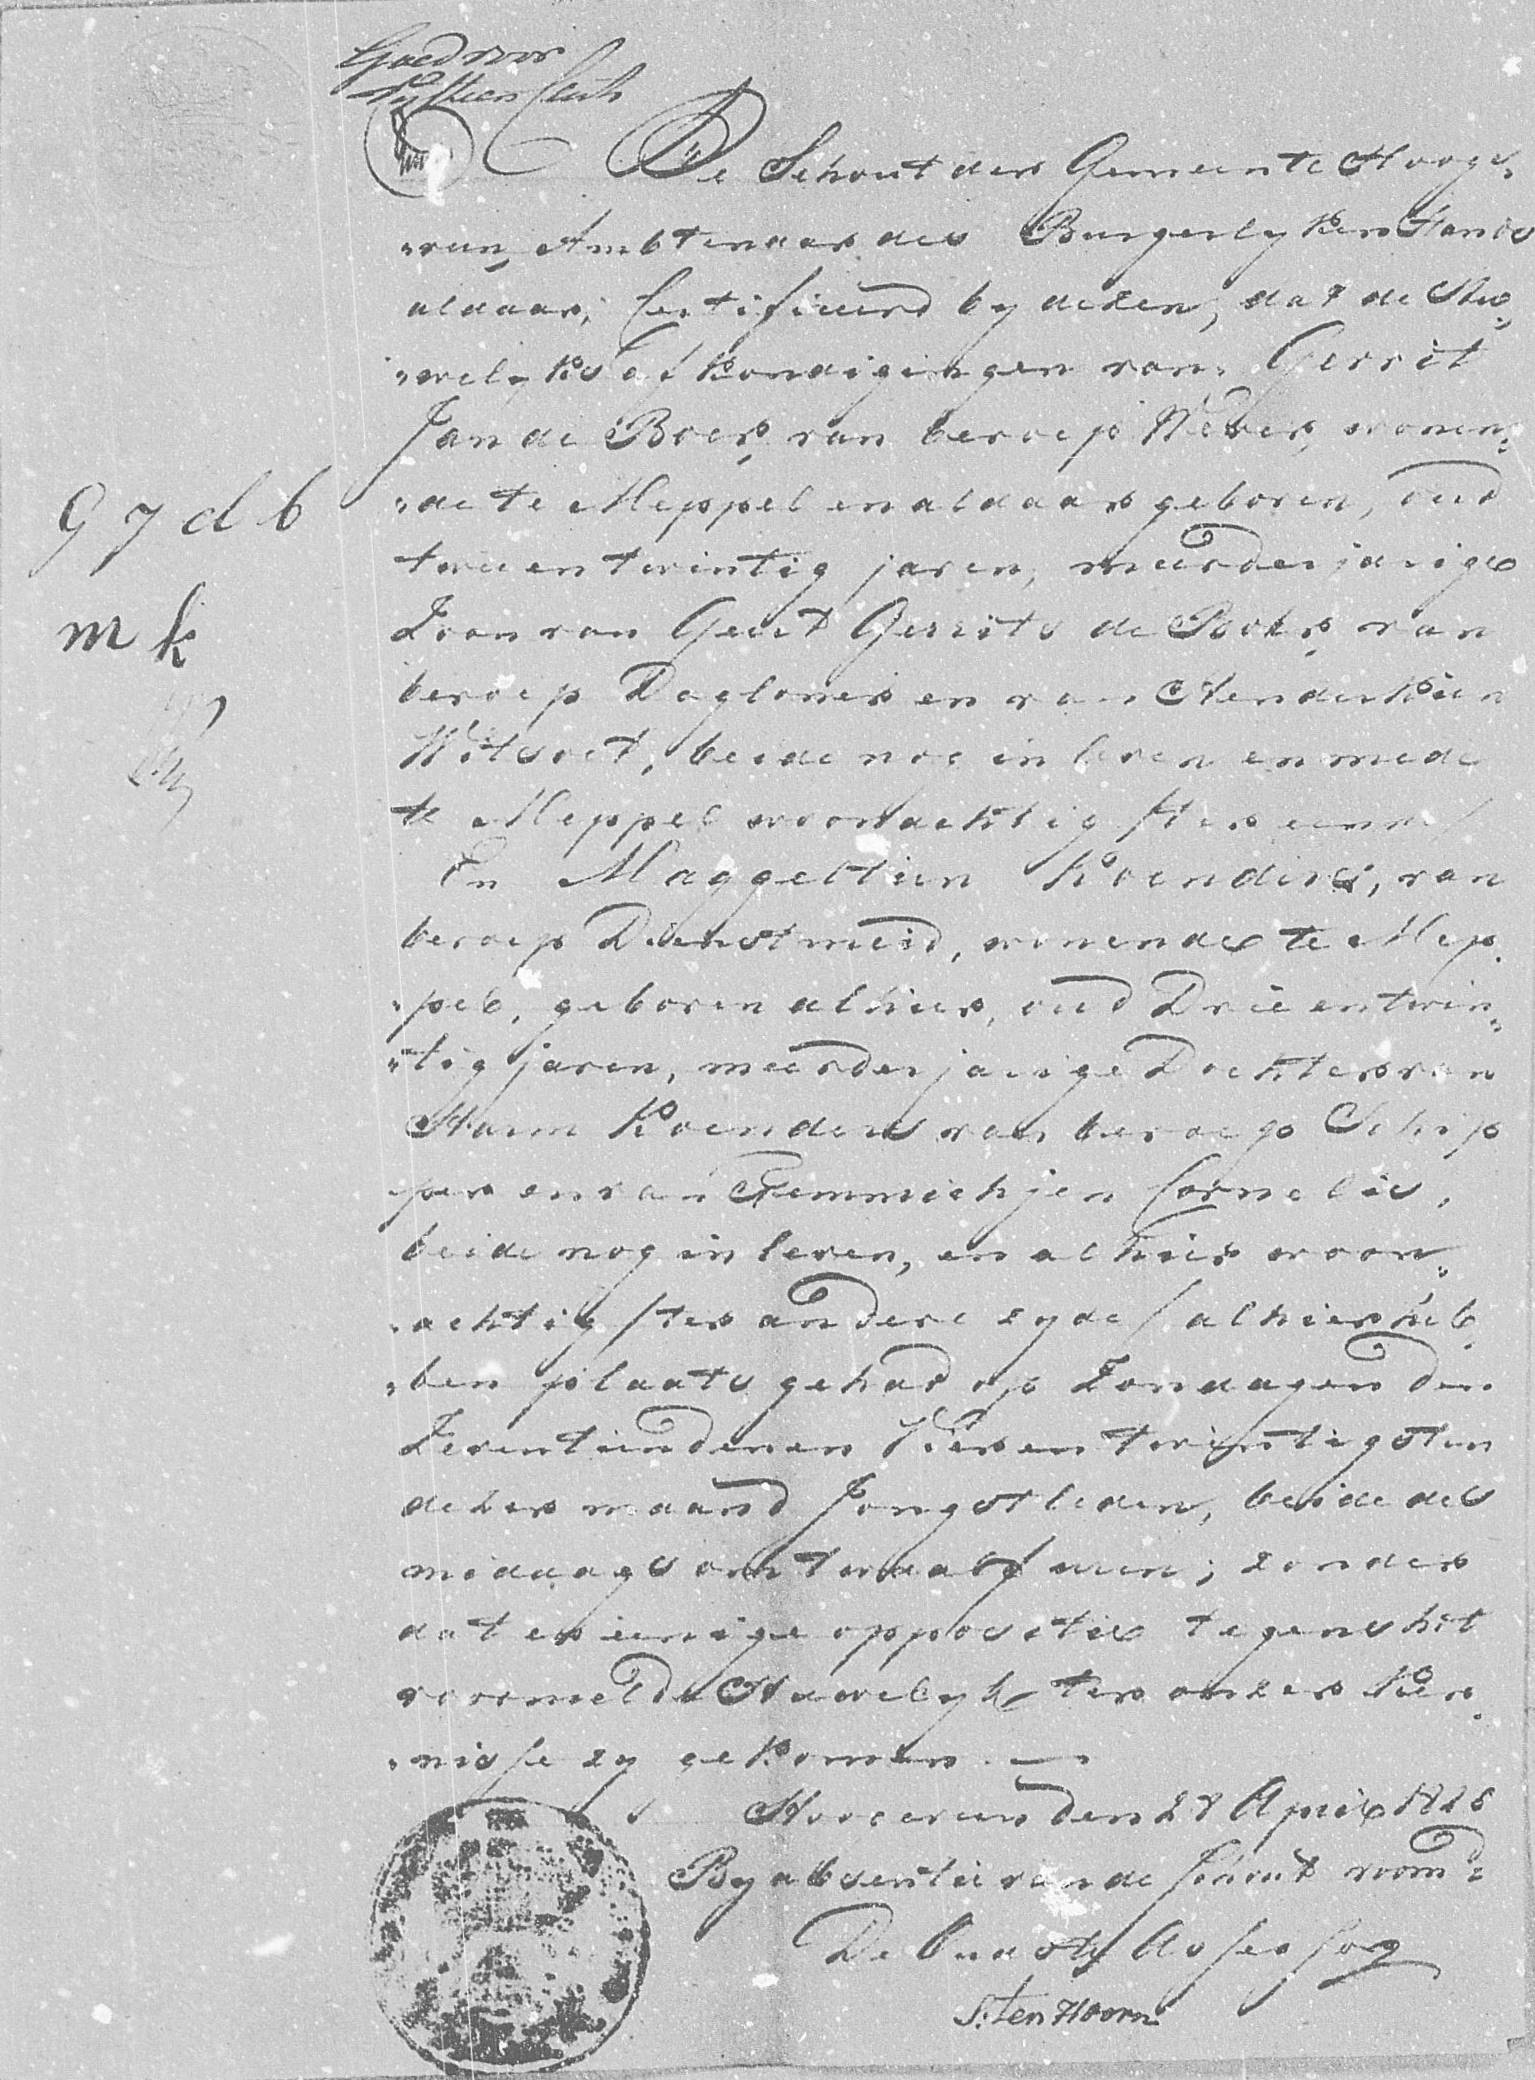 Goed voor
De Schout der Gemeente Hooge,
„veen, Ambtenaar des Burgerlyken Stands
aldaar, Certificeerd by dezen, dat de Hu„
„welyks afkondigingen van, Gerrit
Jan de Boer, van beroep Wever, wonen„
„de te Meppel en aldaar geboren, oud
twee en twintig jaren, meerderjarige
Zoon van Geert Gerrits de Boer, van
beroep Dagloner en van Henderkien
Witvoet, beide nog in leven en mede
te Meppel woonachtig /ter eenre/
En Maggeltien Koenders, van
beroep Dienstmeid, wonende te Mep„
„pel, geboren alhier, oud Drie en twin„
„tig jaren, meerderjarige Dochter van
Harm Koenders van beroep Schip
per en van Femmichjen Cornelis,
beide nog in leven, en alhier woon„
„achtig /ter andere zyde/ alhier heb„
„ben plaats gehad op Zondagen den
Zeventienden en Vier en twintigsten
dezer maand Jongstleden, beide des
middags om twaalf uren; zonder
dat er eenige oppositie tegens het
voormelde Huwelyk ter onzer ken„
„nisse zy gekomen. —
Hoogeveen den 28 April 1825
By absentie van de Schout voornd:
De Oudste Assessor
S: ten Hoorn
97 d b
m k